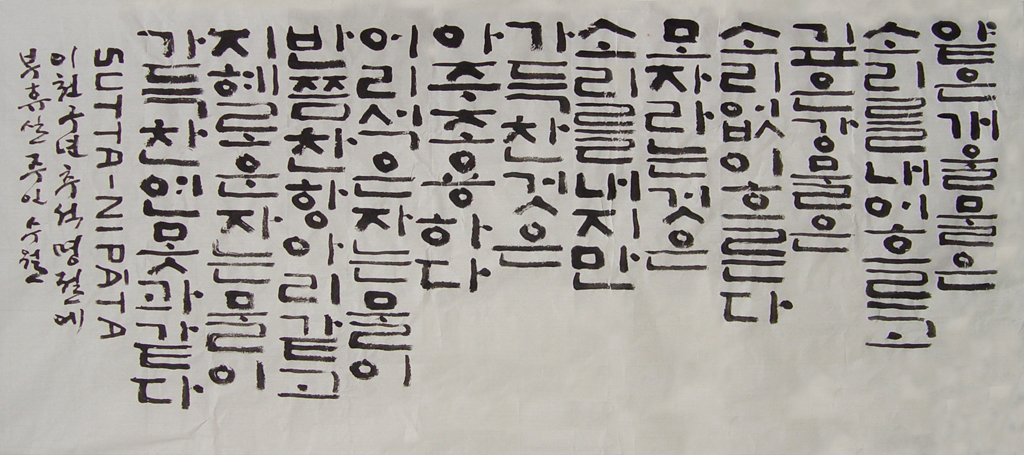 얕은개울물은
소리를내어흐르고
깊은강물은
소리없이흐른다
모자라는것은
소리를내지만
가득찬것은
아주조용하다
어리석은자는물이
반쯤찬항아리같고
지혜로운자는물이
가득찬연못과같다
SUTTA-NIPĀTA
이천구년추석명절에